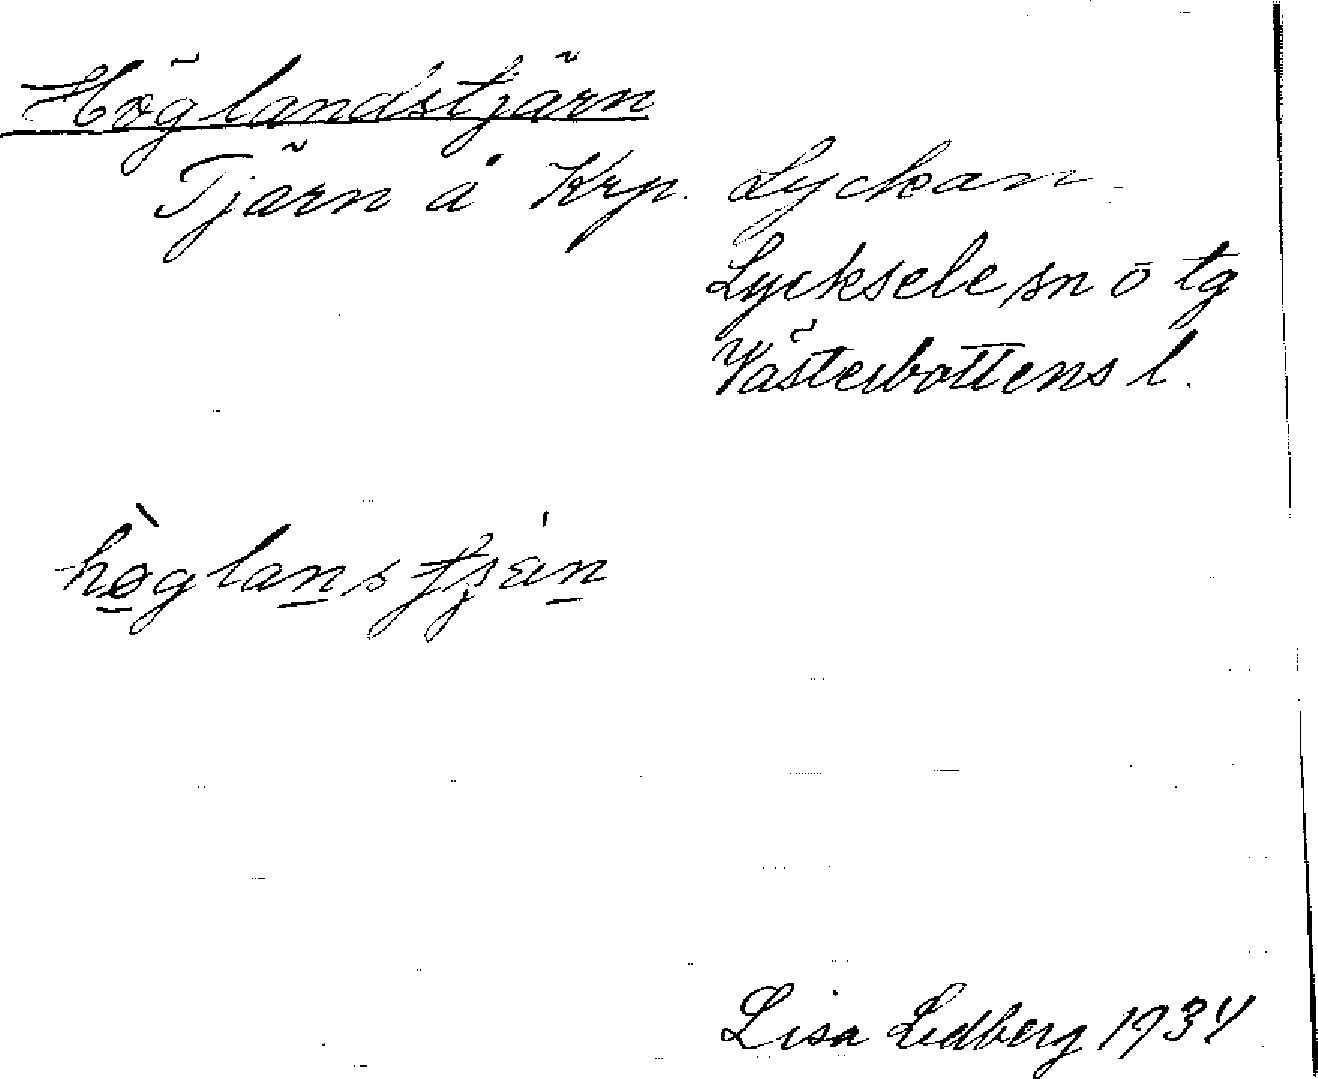 Höglandstjärn
Tjärn å Krp. Lyckan
Lycksele sn o tg
Västerbottens l.
Lisa Lidberg 1934